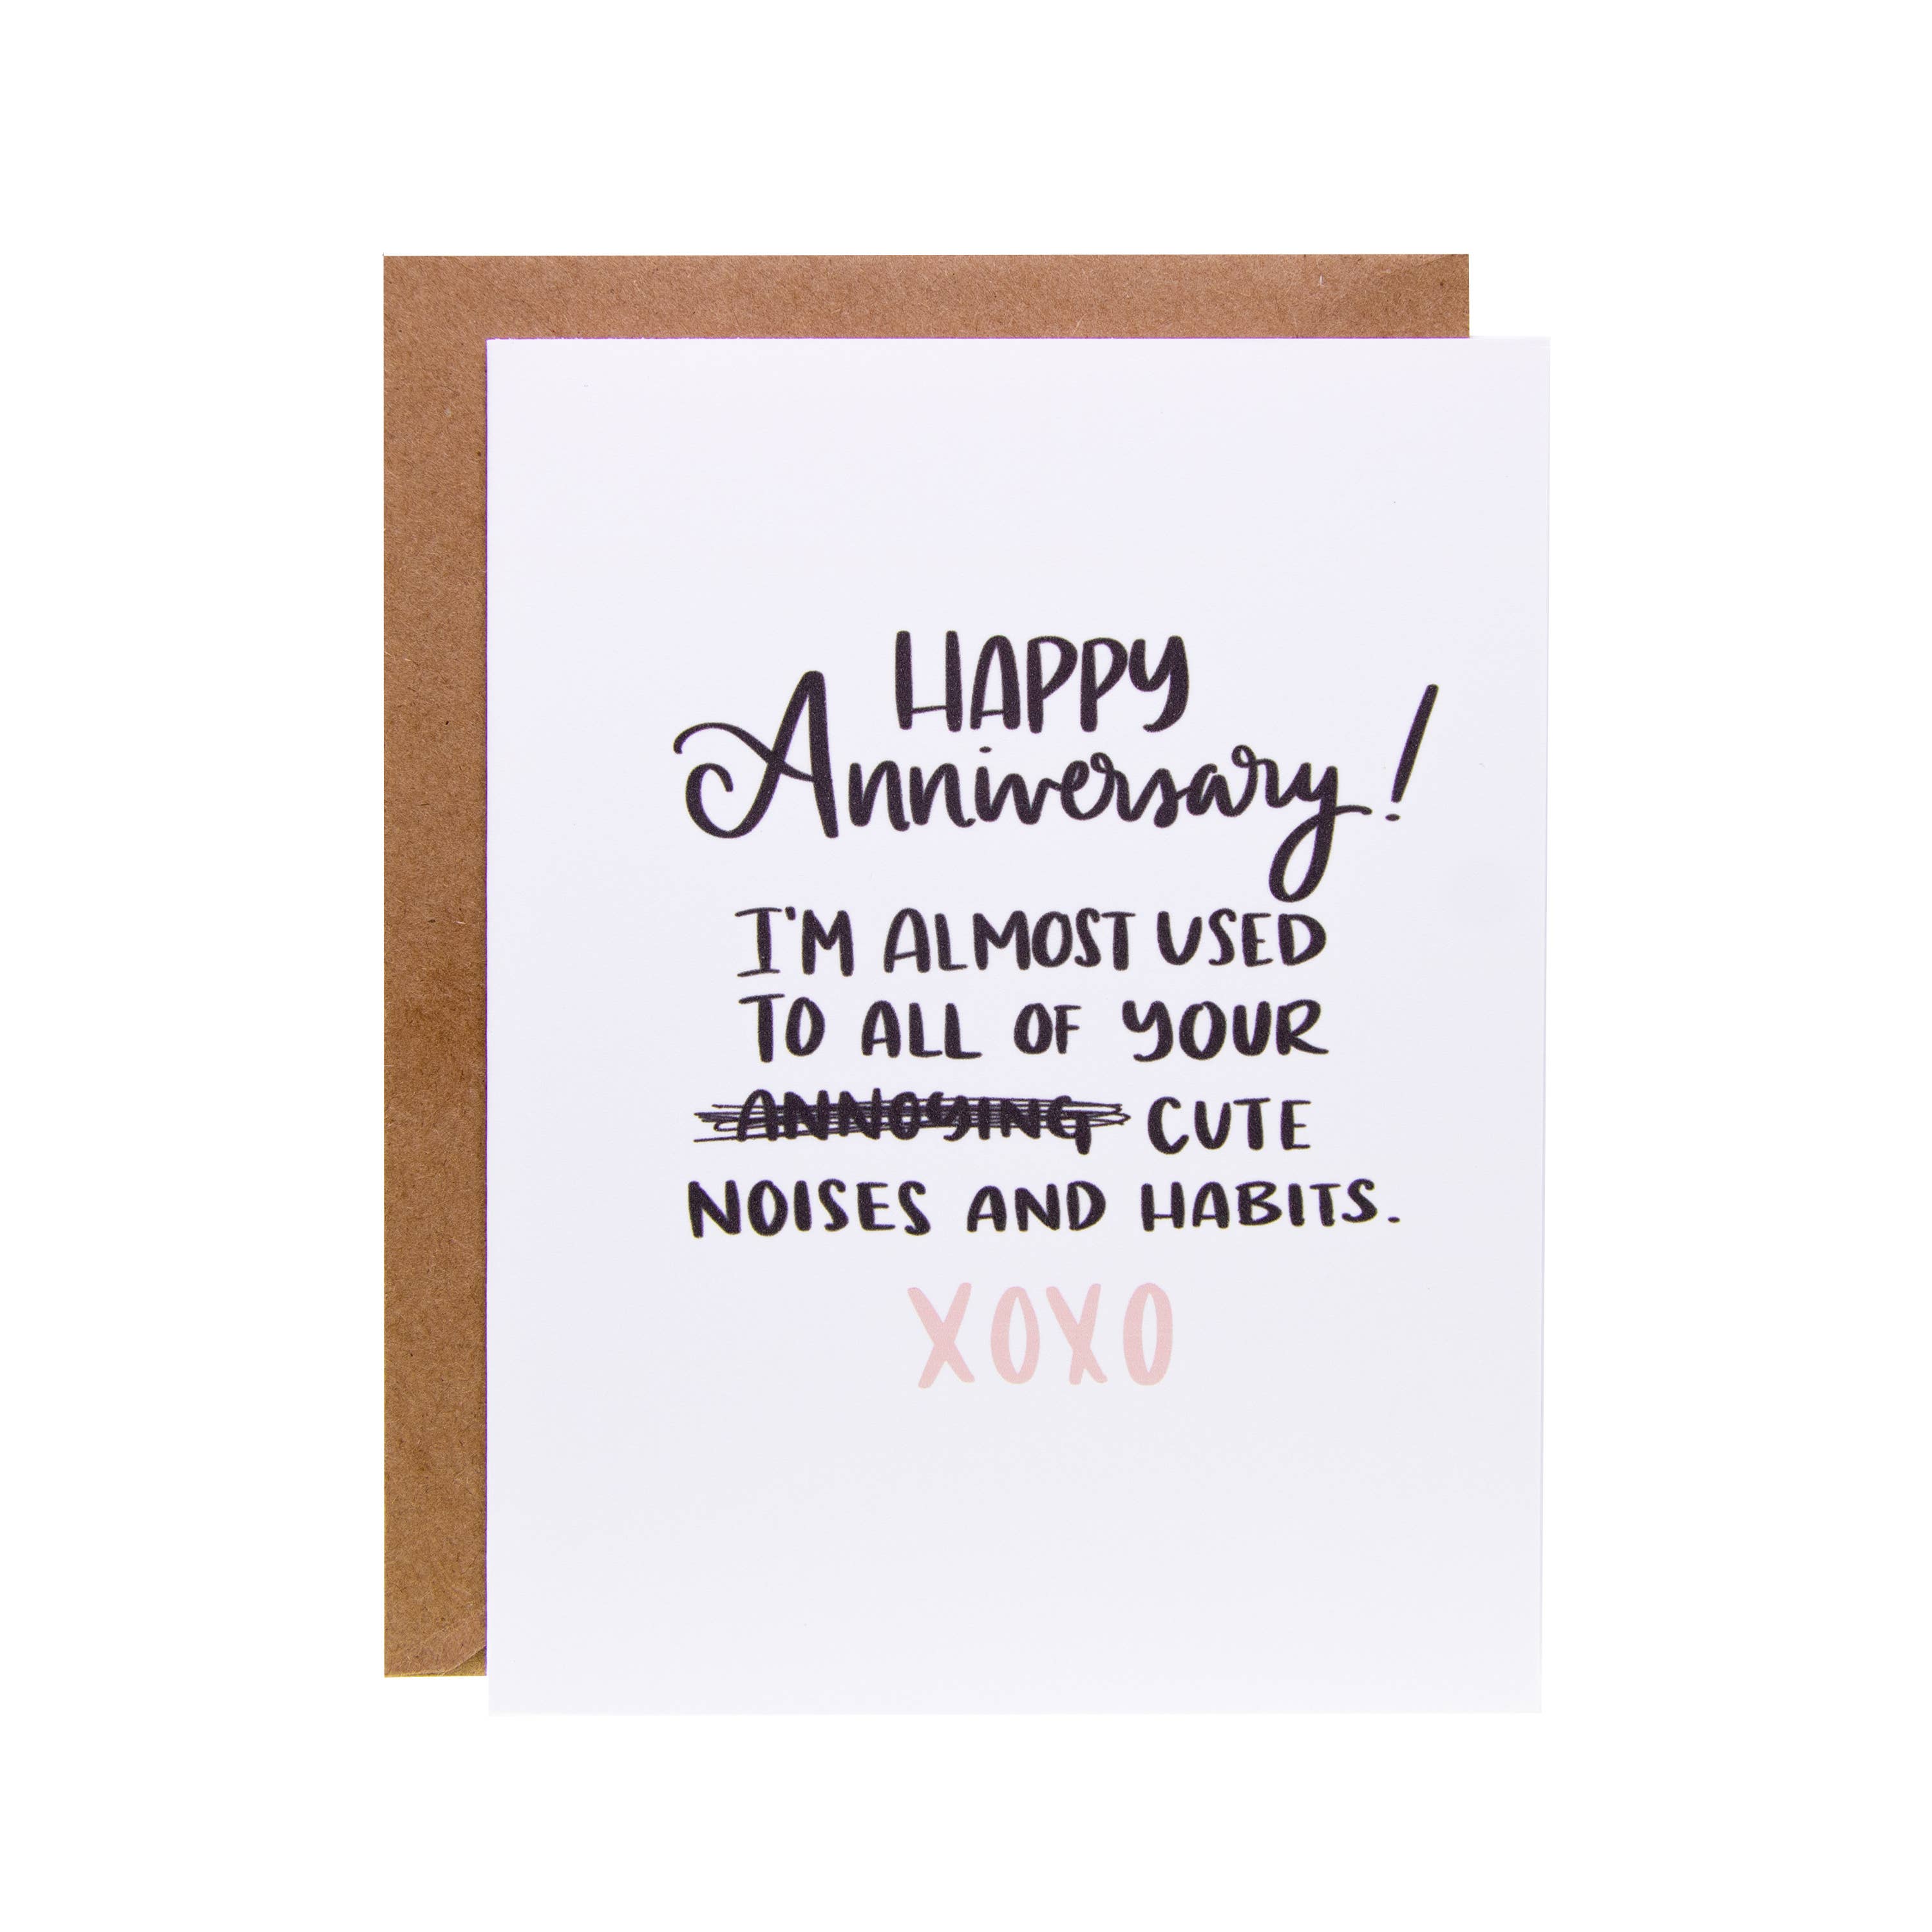 HAPPY
Anniversary!
I'M ALMOST USED
TO ALL OF YOUR
ANNOYING CUTE
NOISES AND HABITS.
XOXO